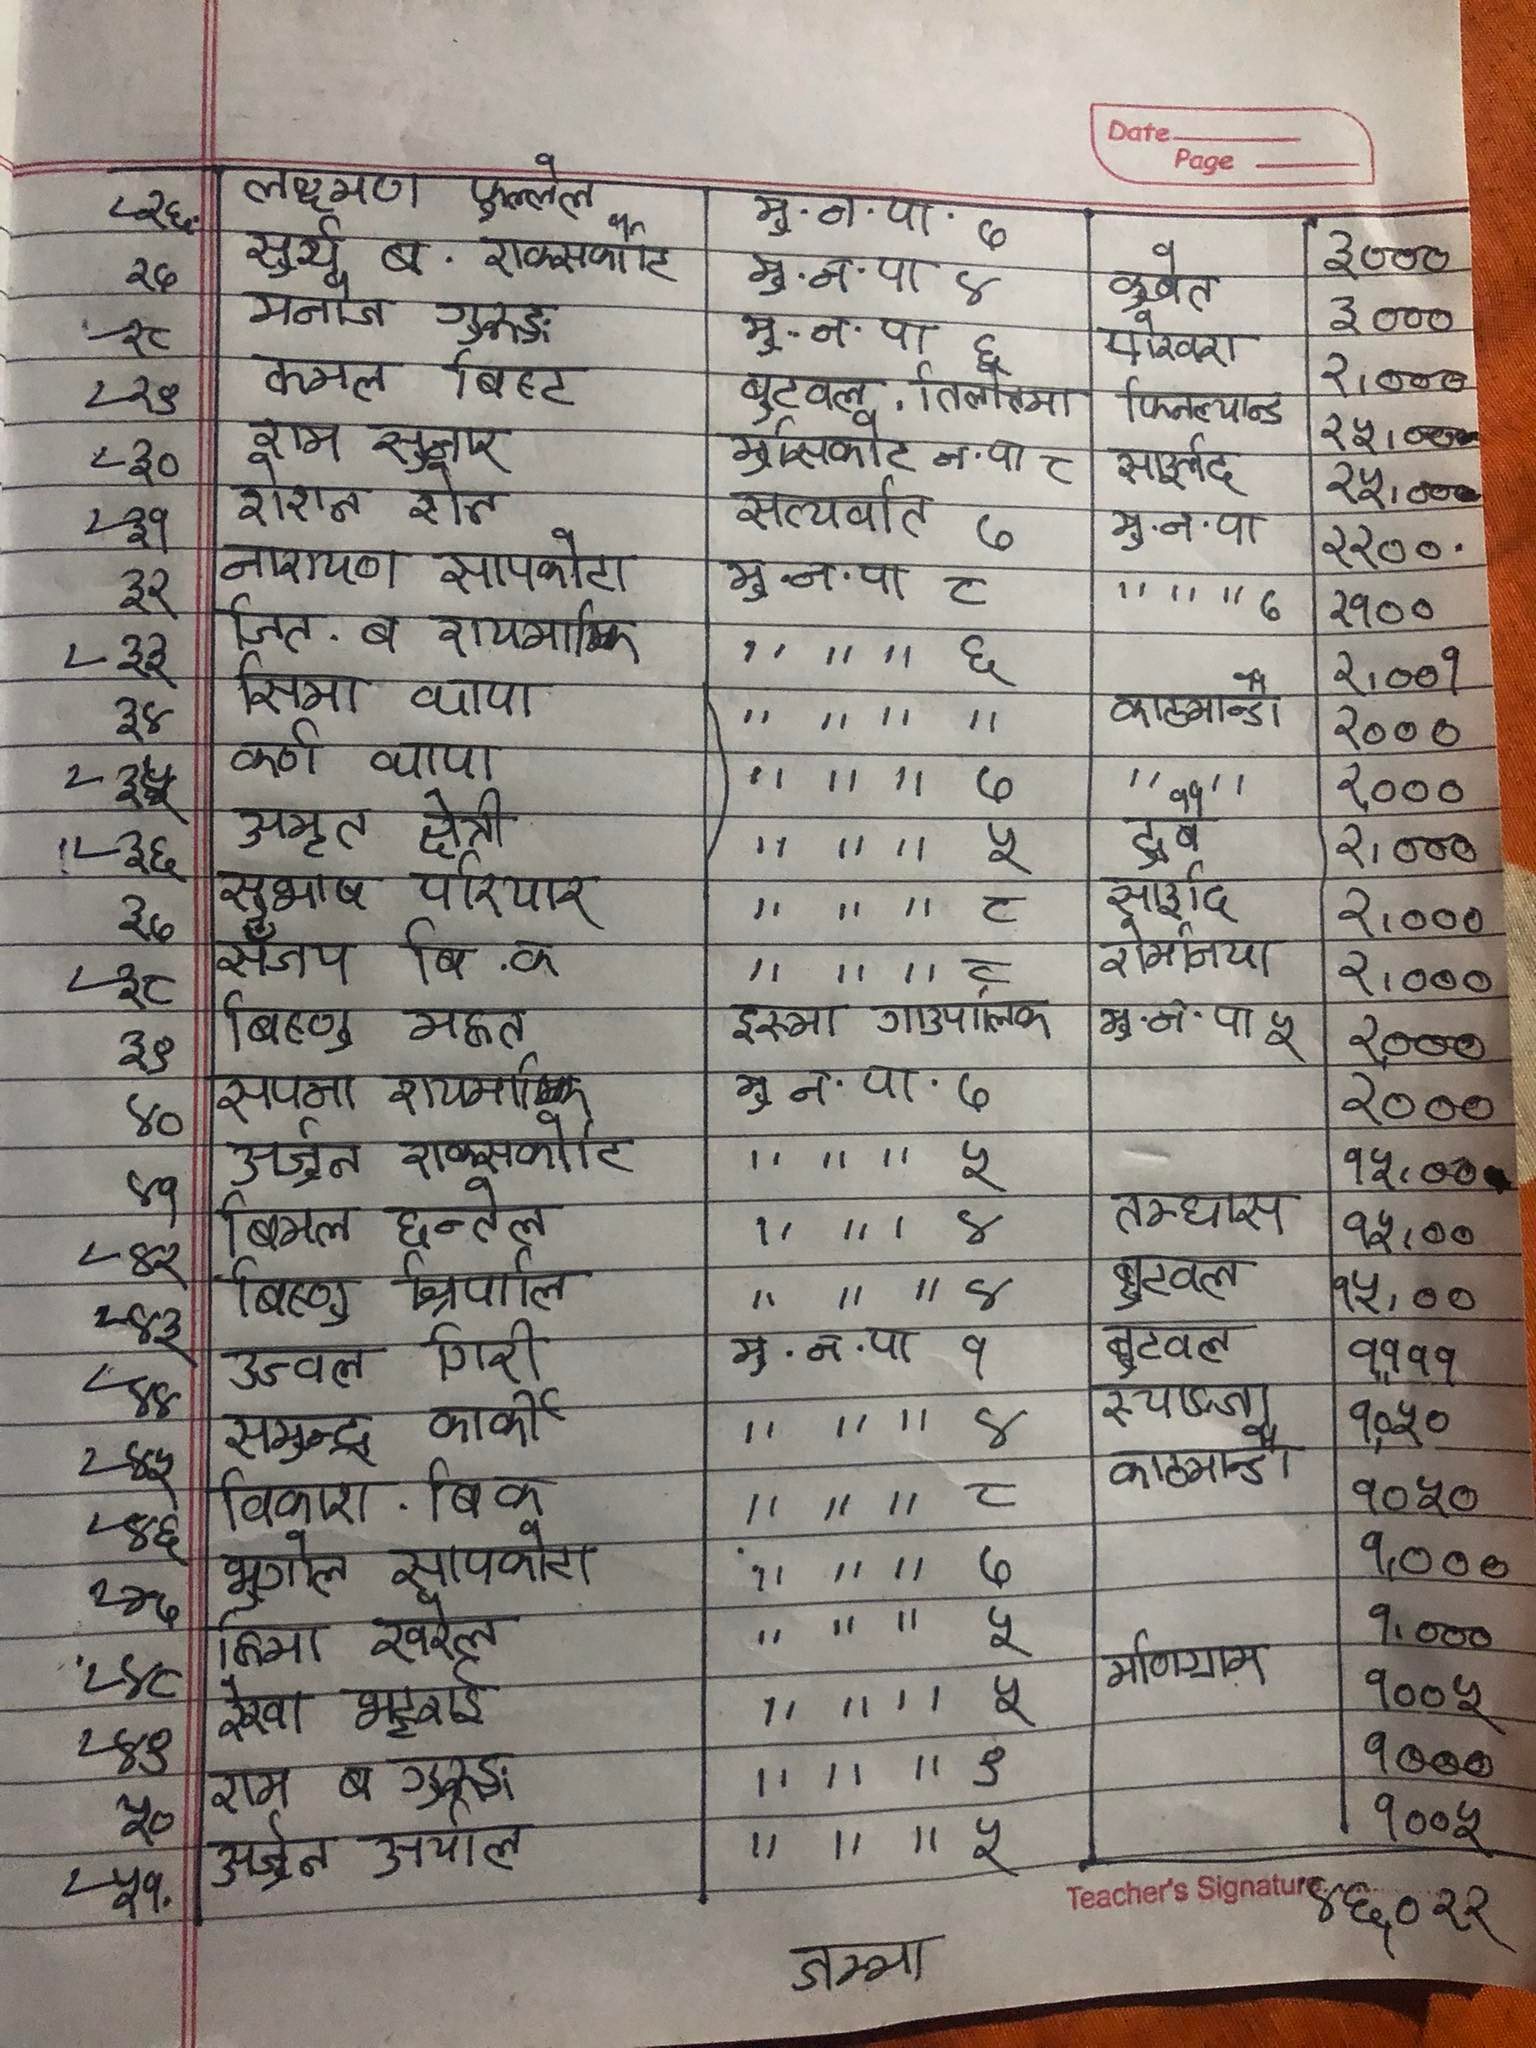 Date
Page
२६. लक्ष्मण फुल्लेल मु.न.पा. ७ ३०००
२७ सुर्य ब. राक्सकोटि मु.न.पा ४ कुवेत ३०००
२८ मनोज गुरुङ मु.न.पा ६ पोखरा २,०००
२९ कमल बिष्ट बुटवल, तिलोत्तमा फिनल्याण्ड
३० राम सुनार मुसिकोट न.पा ८ साईप्रेद
३१ रोशन सेन सत्यवति ७ मु.न.पा २२००.
३२ नारायण सापकोटा मु.न.पा ८ " " " ७ २१००
३३ जित. ब रायमाझि " " " ६ २,००१
३४ सिमा थापा " " " " काठमान्डौ २०००
३५ कर्ण थापा " " " ७ " " २,०००
३६ अमृत क्षेत्री " " " ५ दुबै २,०००
३७ सुभाष परियार " " " ८ २,०००
३८ सँजय बि.क " " " ८ रोमनिया २,०००
३९ बिष्णु महत इस्मा गाउपालिक मु.न.पा ५ २,०००
४० सपना रायमाझि मु न.पा. ७ २०००
४१ अर्जुन राक्सकोटि " " " ५ १५,००
४२ बिमल छन्तेल " " " ४ तम्घास १५,००
४३ बिष्णु त्रिपालि " " " ४ बुटवल १५,००
४४ उज्वल गिरी मु.न.पा १ बुटवल १,१११
४५ समुन्द्र कार्की " " " ४ स्याङ्जा १,०५०
४६ विकाश. बि क " " " ८ काठमान्डौ १०५०
४७ भुगोल सापकोटा " " " ७ १,०००
४८ हिमा खरेल " " " ५ १,०००
४९ रेखा भट्टराई " " " ५ मणिग्राम १००५
५० राम ब गुरुङ " " " ९ १०००
५१. अर्जुन अर्याल " " " ५ १००५
Teacher's Signature ४६,०२२
जम्मा